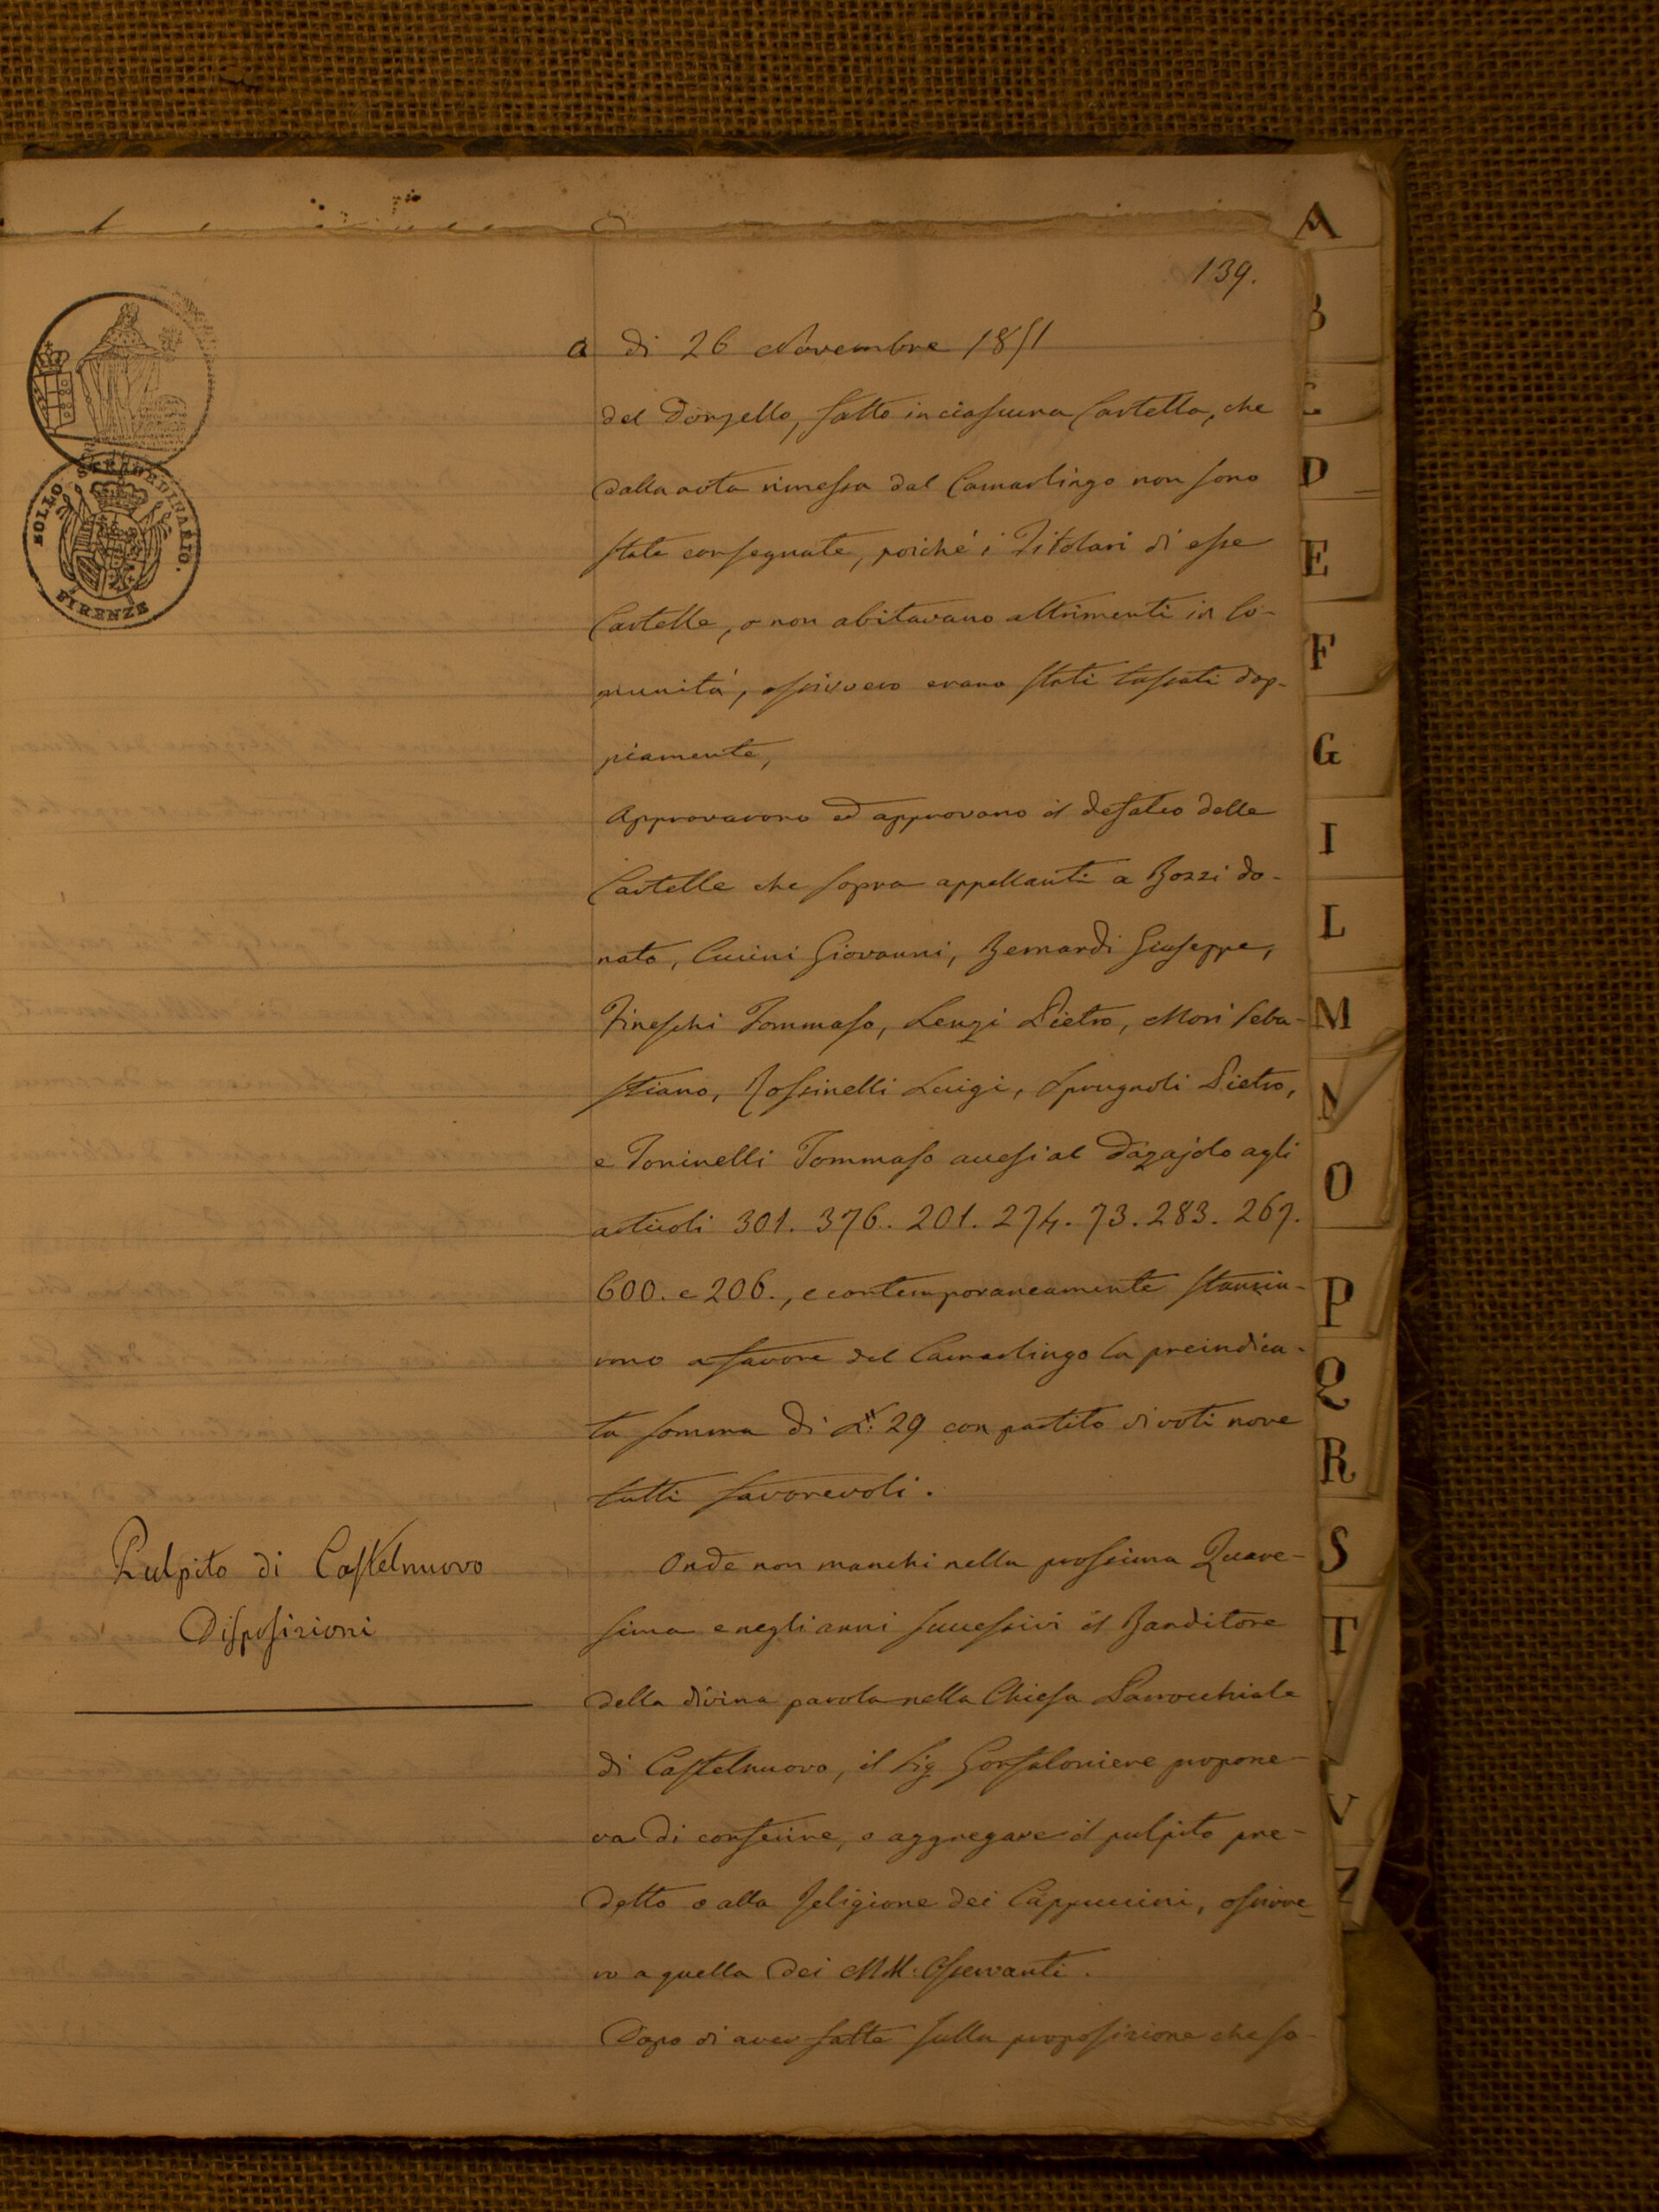 139.
a di 26 Novembre 1851
del Donzello, fatto in ciascuna Cartella, che
dalla nota rimessa dal Camarlingo non sono
state consegnate, poiché i Titolari di esse
Cartelle, o non abitavano altrimenti in Co-
munità, ossivvero erano stati tassati dop-
piamente,
Approvarono ed approvano il defalco delle
Cartelle che sopra appellanti a Bozzi Do-
nato, Cucini Giovanni, Bernardi Giuseppe,
Fineschi Tommaso, Lenzi Pietro, Mori Seba-
stiano, Rossinelli Luigi, Sprugnoli Pietro,
e Toninelli Tommaso accesi al Dazajolo agli
articoli 301. 376. 201. 274. 73. 283. 267.
600. e 206., e contemporaneamente stanzia-
rono a favore del Camarlingo la preindica-
ta somma di L: 29 con partito di voti nove
tutti favorevoli.
Pulpito di Castelnuovo
Disposizioni
Onde non manchi nella prossima Quare-
sima e negli anni successivi il Banditore
della divina parola nella Chiesa Parrocchiale
di Castelnuovo, il Sig Gonfaloniere propone-
va di conferire, o aggregare il pulpito pre-
detto o alla Religione dei Cappuccini, ossivve-
ro a quella dei MM: Osservanti.
Dopo di aver fatte sulla proposizione che so-
BOLLO STRAORDINARIO.
FIRENZE
A
B
C
D
E
F
G
I
L
M
N
O
P
Q
R
S
T
V
Z